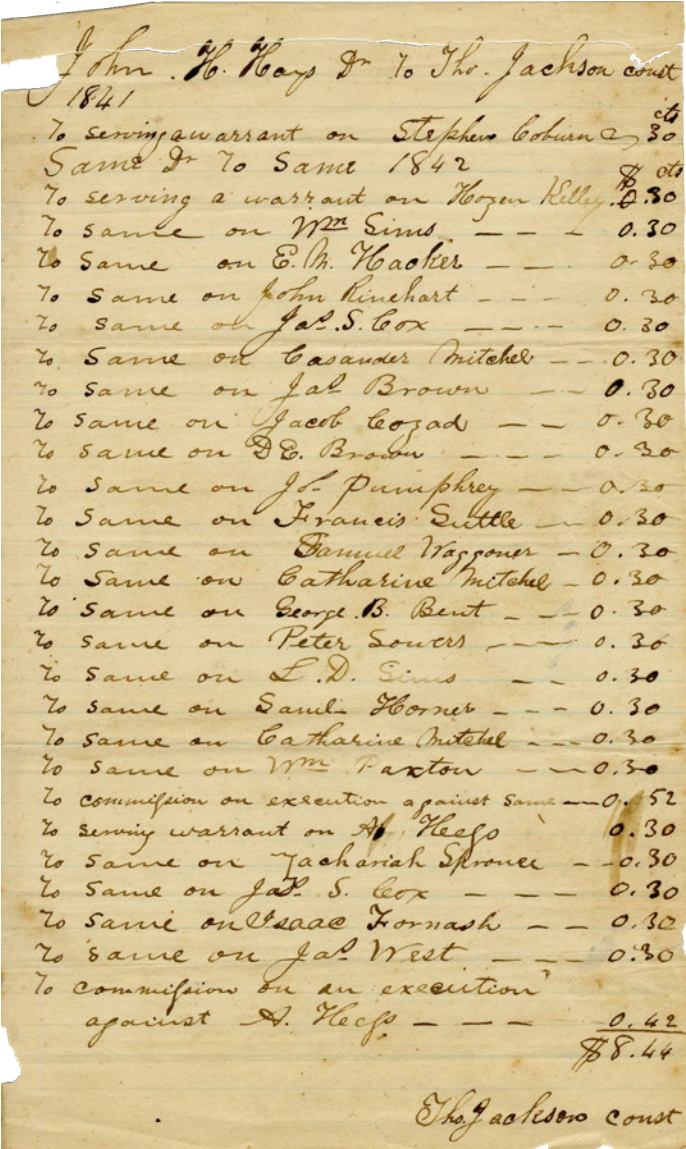 John . H. Hays Dr To Tho. Jackson const
1841
cts
To serving a warrant on Stephen Coburn 30
Same Dr To Same 1842 $ cts
To serving a warrant on Hozen Kelley. 0.30
To same on Wm Sims — — — 0.30
To same on E. M. Hacker — — 0.30
To same on John Rinehart - - - 0.30
To same on Jas. S. Cox — — — 0.30
To same on Casander Mitchel — — 0.30
To same on Jas Brown — — 0.30
To same on Jacob Cozad — — 0.30
To same on D E. Brown — — — 0.30
To same on Jos Pumphrey — — 0.30
To same on Francis Suttle — 0.30
To same on Samuel Waggoner — 0.30
To same on Catharine Mitchel — 0.30
To same on George. B. Bent — — — 0.30
To same on Peter Sowers — — — 0.30
To same on L. D. Sims — — 0.30
To same on Saml Horner — — — 0.30
To same on Catharine Mitchel — — — 0.30
To same on Wm Paxton — — 0.30
To commission on execution against same — 0.52
To serving warrant on A. Hess 0.30
To same on Zachariah Sprouce — — 0.30
To same on Jas. S. Cox — — — 0.30
To same on Isaac Fornash — — 0.30
To same on Jas West — — — 0.30
To commission on an execution
against A. Hess — — — 0.42
$8.44
Tho. Jackson const